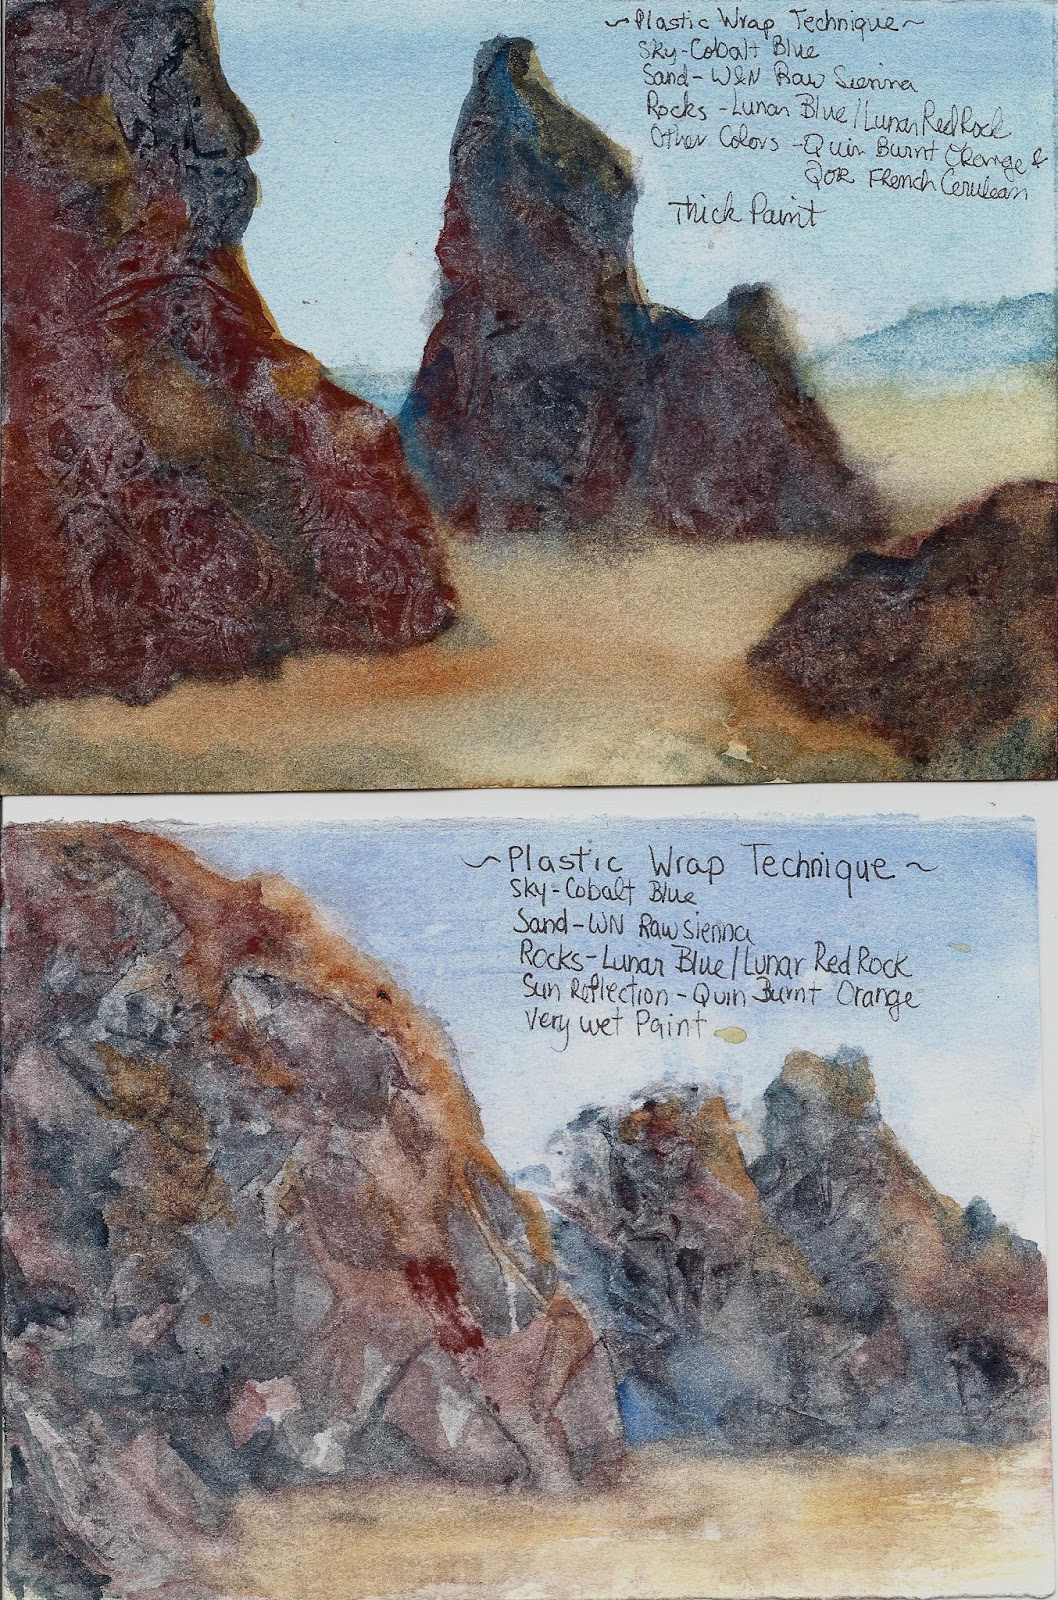 ~Plastic Wrap Technique~
Sky-Cobalt Blue
Sand-W&N Raw Sienna
Rocks-Lunar Blue/Lunar Red Rock
Other Colors-Quin Burnt Orange &
QOR French Cerulean
Thick Paint
~Plastic Wrap Technique~
Sky-Cobalt Blue
Sand-WN Raw sienna
Rocks-Lunar Blue/Lunar Red Rock
Sun Reflection-Quin Burnt Orange
Very wet Paint